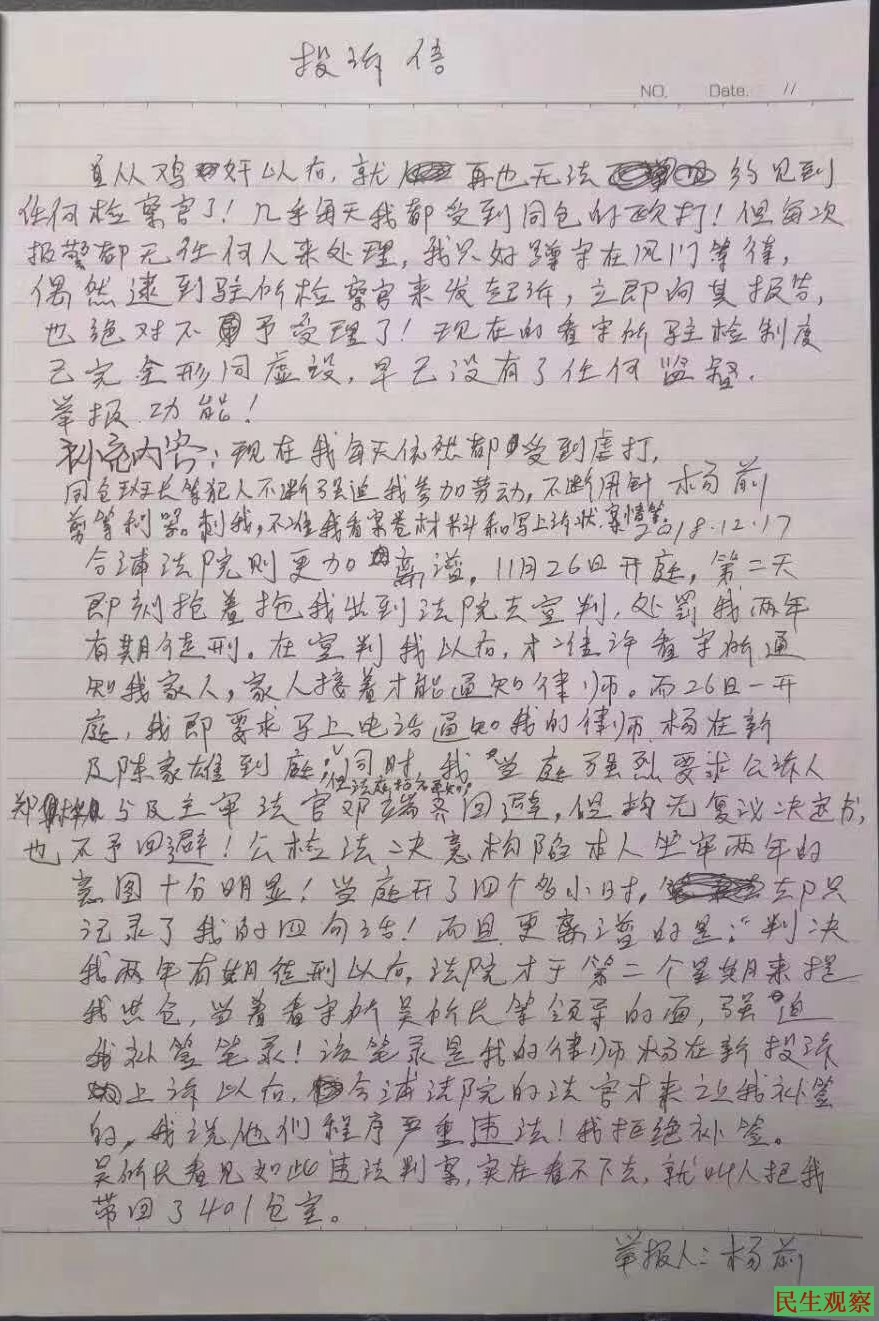 投诉信
NO. Date. //
自从鸡奸以后,就再也无法约见到
任何检察官了!几乎每天我都受到同仓的殴打!但每次
报警都无任何人来处理,我只好蹲守在风门等待,
偶然逮到驻所检察官来发起诉,立即向其报告,
也绝对不予受理了!现在的看守所驻检制度
已完全形同虚设,早已没有了任何监督.
举报功能!
补充内容:现在我每天依然都受到虐打,
同仓班长等犯人不断强迫我参加劳动,不断用针 杨前
剪等利器刺我,不准我看案卷材料和写上诉状,案情等 2018.12.17
合浦法院则更加离谱,11月26日开庭,第二天
即刻拖着拖我出到法院去宣判,处罚我两年
有期徒刑。在宣判我以后,才准许看守所通
知我家人,家人接着才能通知律师。而26日一开
庭,我即要求写上电话通知我的律师杨在新
及陈家雄到庭,同时,我当庭强烈要求公诉人
但法庭
郑 与及主审法官邓端齐回避,但均无复议决定书,
也不予回避!公检法决意构陷本人坐牢两年的
意图十分明显!当庭开了四个多小时,却只
记录了我的四句话!而且更离谱的是:判决
我两年有期徒刑以后,法院才于第二个星期来提
我出仓,当着看守所吴所长等领导的面,强迫
我补签笔录!该笔录是我的律师杨在新投诉
上诉以后,合浦法院的法官才来让我补签
的,我说他们程序严重违法!我拒绝补签。
吴所长看见如此违法判案,实在看不下去,就叫人把我
带回了401仓室。
举报人:杨前
民生观察